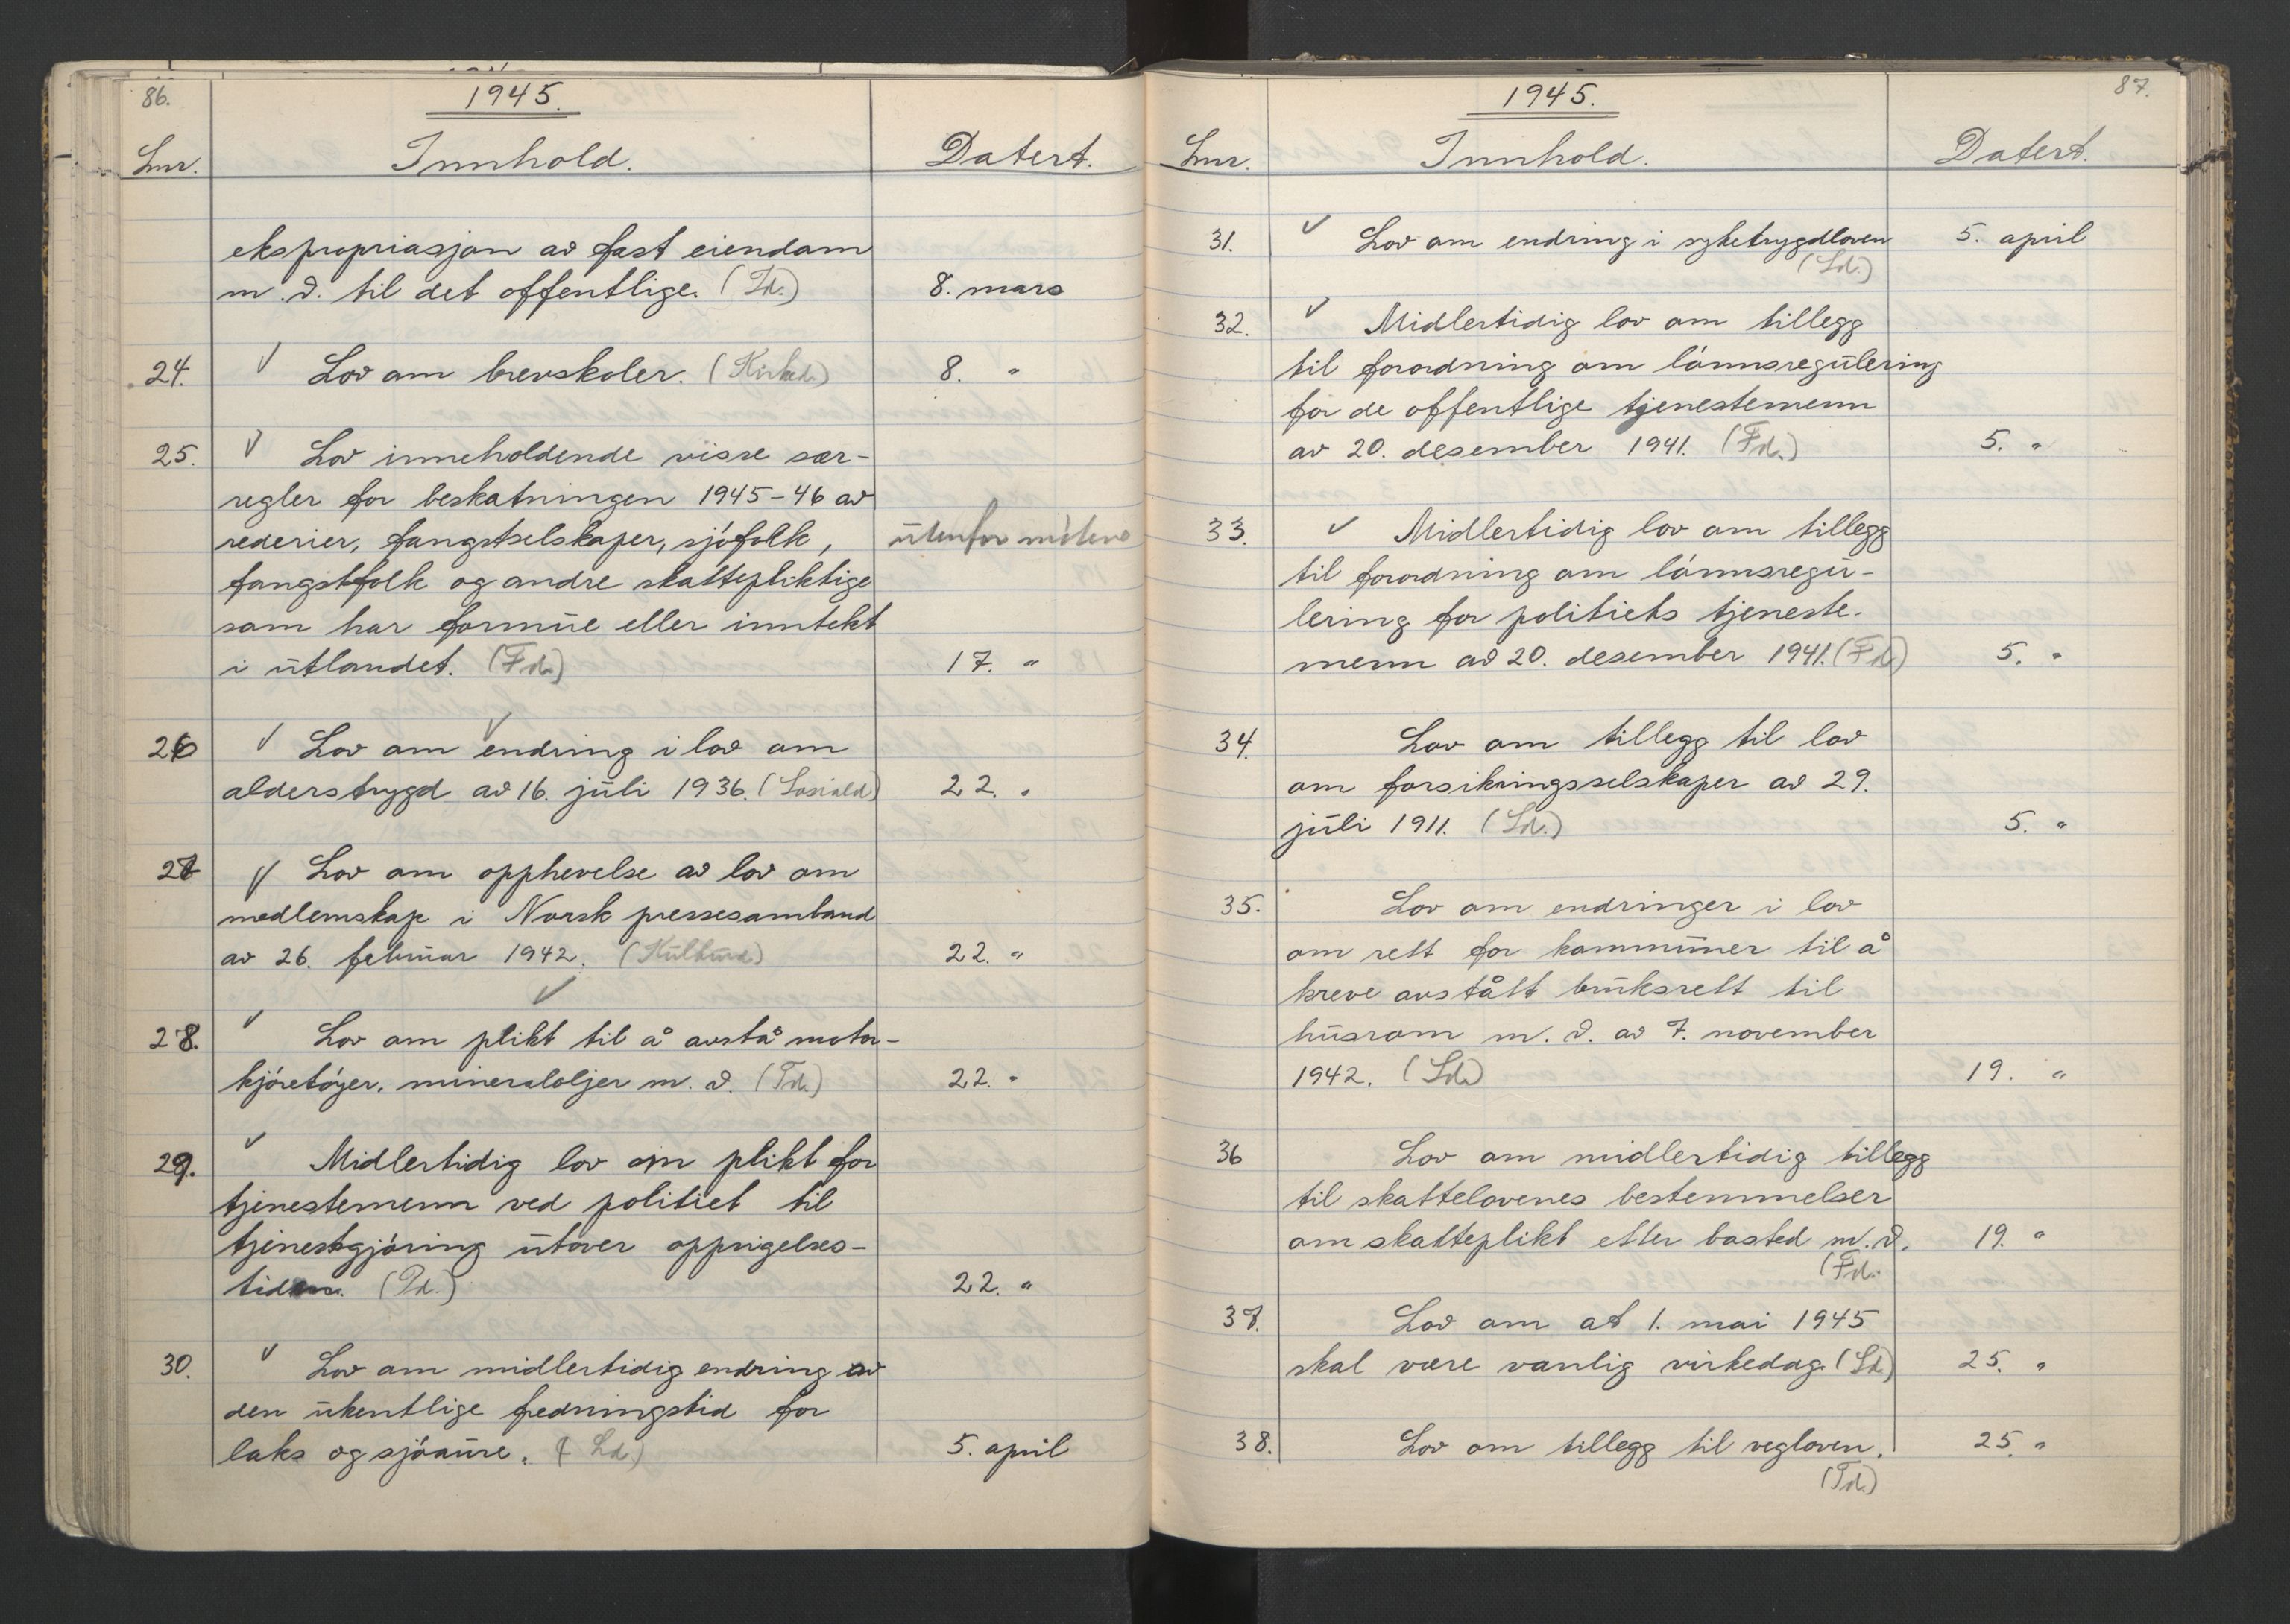 86.
1945.
Lnr. Innhold. Datert.
ekspropriasjon av fast eiendom
m.v. til det offentlige. (Id.) 8. mars
24. ✓ Lov om brevskoler. (Kirked.) 8. "
25. ✓ Lov inneholdende visse sær-
regler for beskatningen 1945-46 av
rederier, fangstselskaper, sjøfolk, utenfor møtene
fangstfolk og andre skattepliktige
som har formue eller inntekt
i utlandet. (Fd.) 17. "
26 ✓ Lov om endring i lov om
alderstrygd av 16. juli 1936. (Sosiald) 22. "
27 ✓ Lov om opphevelse av lov om
medlemskap i Norsk pressesamband
av 26. februar 1942. (Kulturd) 22. "
28. ✓ Lov om plikt til å avstå motor-
kjøretøyer, mineraloljer m.v. (Td.) 22. "
29. ✓ Midlertidig lov om plikt for
tjenestemenn ved politiet til
tjenestgjøring utover oppsigelses-
tiden. (Pd.) 22. "
30. ✓ Lov om midlertidig endring av
den ukentlige fredningstid for
laks og sjøaure. (Ld.) 5. april
87.
1945.
Lnr. Innhold. Datert.
31. ✓ Lov om endring i syketrygdloven 5. april
(Sd.)
32. ✓ Midlertidig lov om tillegg
til forordning om lønnsregulering
for de offentlige tjenestemenn
av 20. desember 1941. (Fd.) 5. "
33. ✓ Midlertidig lov om tillegg
til forordning om lønnsregu-
lering for politiets tjeneste-
menn av 20. desember 1941. (Fd.) 5. "
34. Lov om tillegg til lov
om forsikringsselskaper av 29.
juli 1911. (Sd.) 5. "
35. Lov om endringer i lov
om rett for kommuner til å
kreve avstått bruksrett til
husrom m.v. av 7. november
1942. (Sd.) 19. "
36 Lov om midlertidig tillegg
til skattelovenes bestemmelser
om skatteplikt etter bosted m.v. 19. "
(Fd.
37. Lov om at 1. mai 1945
skal være vanlig virkedag. (Sd.) 25. "
38. Lov om tillegg til vegloven. 25. "
(Td.)